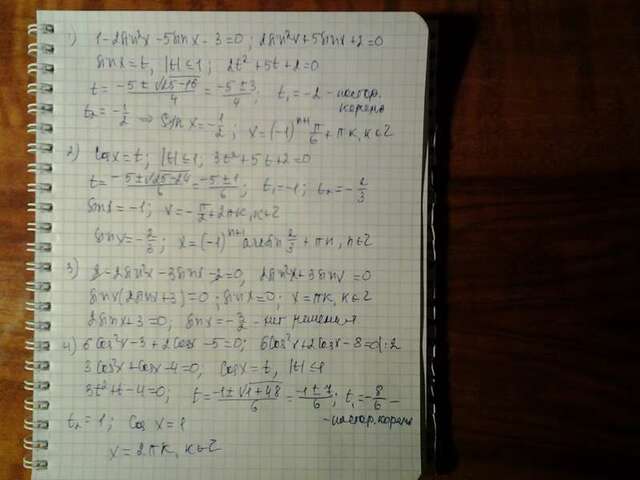 1) 1-2sin²x-5sinx-3=0; 2sin²x+5sinx+2=0
sinx=t, |t|≤1; 2t²+5t+2=0
t=(-5±√25-16)/4=(-5±3)/4; t₁=-2 - постор.
корень
t₂=-1/2 ⇒ sinx=-1/2; x=(-1)ⁿ⁺¹ π/6+πk, k∈Z
2) Cosx=t; |t|≤1; 3t²+5t+2=0
t=(-5±√25-24)/6=(-5±1)/6; t₁=-1; t₂=-2/3
sinx=-1; x=-π/2+2πk, k∈Z
sinx=-2/3; x=(-1)ⁿ⁺¹ arcsin 2/3+πn, n∈Z
3) 2-2sin²x-3sinx-2=0, 2sin²x+3sinx=0
sinx(2sinx+3)=0; sinx=0; x=πk, k∈Z
2sinx+3=0; sinx=-3/2 - нет решения
4) 6Cos²x-3+2Cosx-5=0; 6Cos²x+2Cosx-8=0|:2
3Cos²x+Cosx-4=0; Cosx=t, |t|≤1
3t²+t-4=0; t=(-1±√1+48)/6=(-1±7)/6; t₁=-8/6 -
- постор. корень
t₂=1; Cosx=1
x=2πk, k∈Z